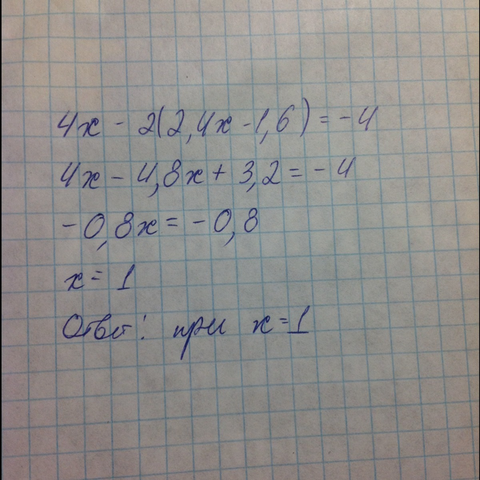 4x - 2(2,4x - 1,6) = -4
4x - 4,8x + 3,2 = -4
-0,8x = -0,8
x = 1
Ответ: при x=1